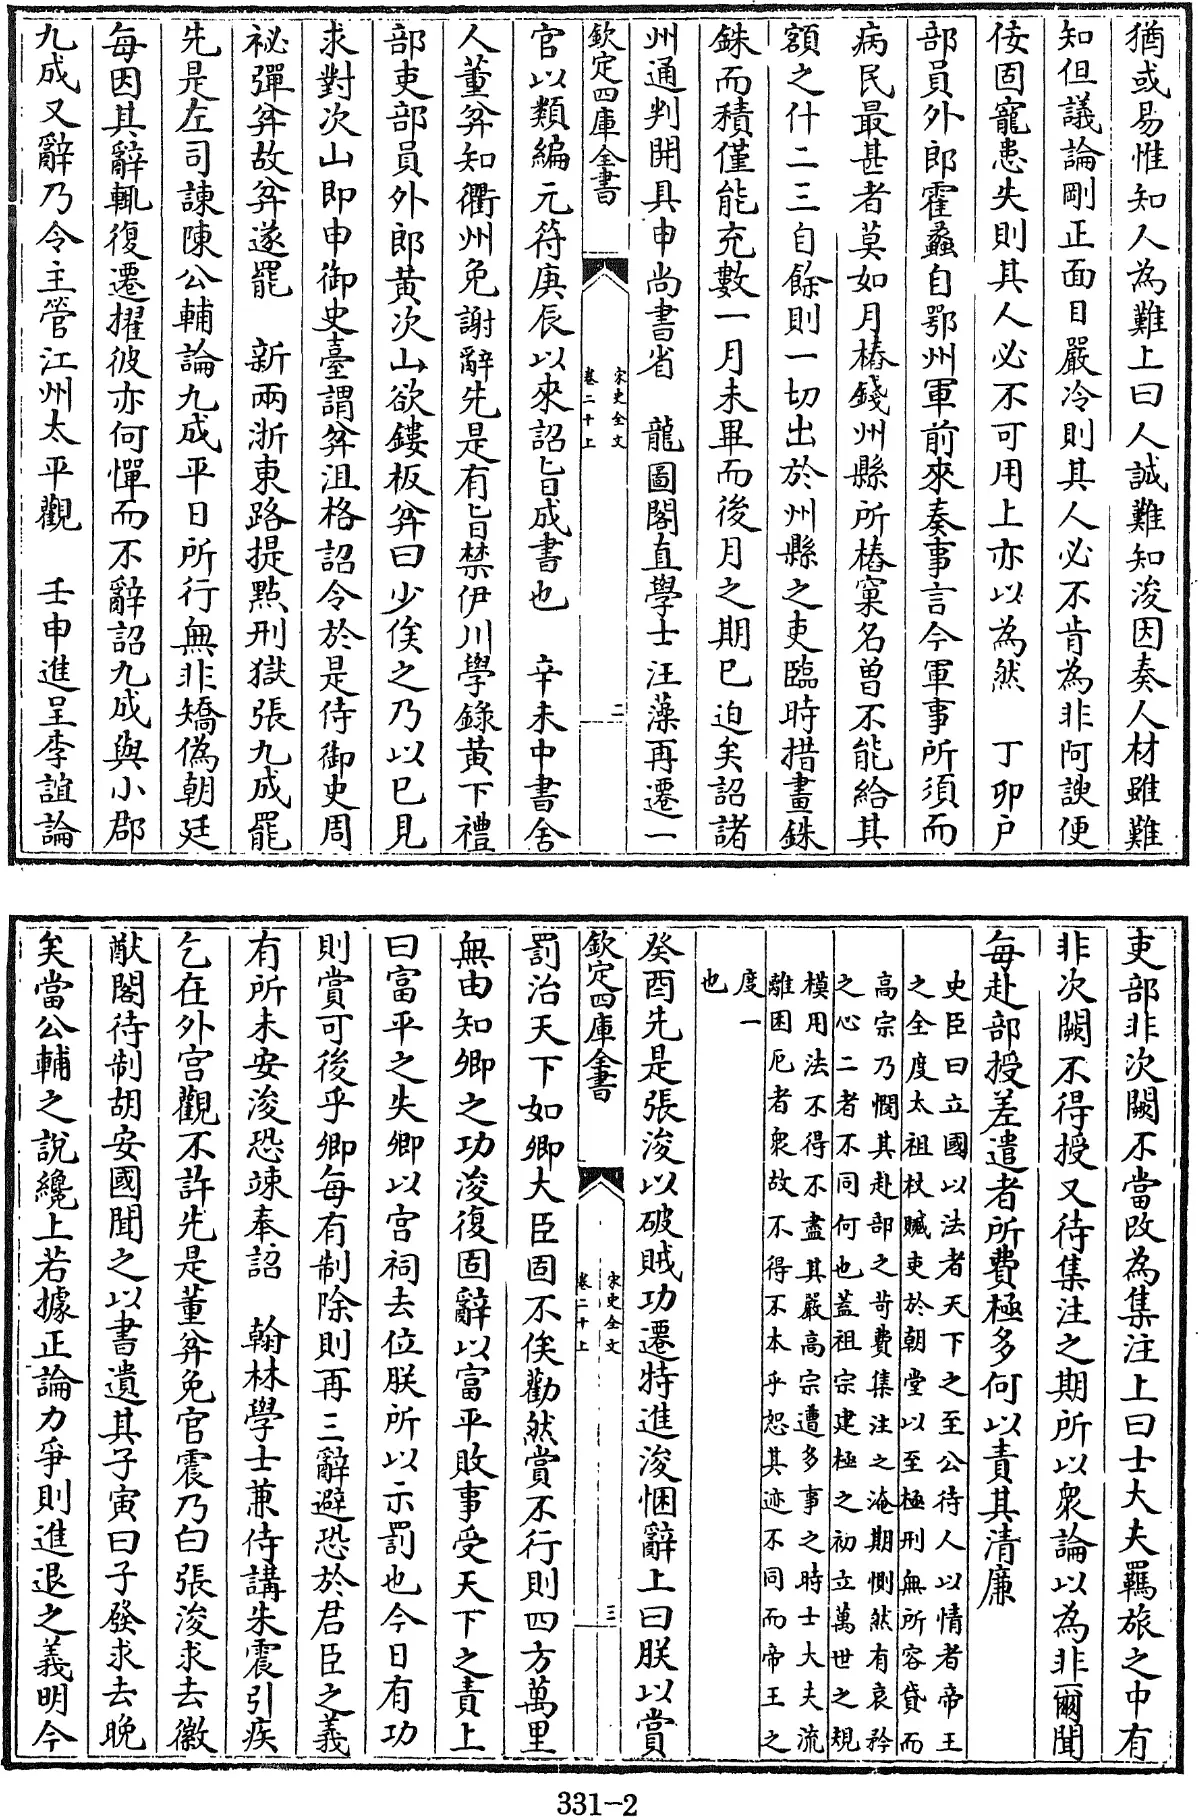 猶或易惟知人為難上曰人誠難知浚因奏人材雖難
知但議論剛正面目嚴冷則其人必不肯為非阿諛便
佞固寵患失則其人必不可用上亦以為然　丁卯户
部員外郎霍蠡自鄂州軍前來奏事言今軍事所須而
病民最甚者莫如月樁錢州縣所樁窠名曽不能給其
額之什二三自餘則一切出於州縣之吏臨時措畫銖
銖而積僅能充數一月未畢而後月之期已迫矣詔諸
州通判開具申尚書省　龍圖閣直學士汪藻再遷一
欽定四庫全書
宋史全文
卷二十上
二
官以類編元符庚辰以來詔旨成書也　辛未中書舍
人董弅知衢州免謝辭先是有旨禁伊川學錄黄下禮
部吏部員外郎黄次山欲鏤板弅曰少俟之乃以已見
求對次山即申御史臺謂弅沮格詔令於是侍御史周
祕彈弅故弅遂罷　新兩浙東路提㸃刑獄張九成罷
先是左司諫陳公輔論九成平日所行無非矯偽朝廷
每因其辭輒復遷擢彼亦何憚而不辭詔九成與小郡
九成又辭乃令主管江州太平觀　壬申進呈李誼論
吏部非次闕不當改為集注上曰士大夫羈旅之中有
非次闕不得授又待集注之期所以衆論以為非爾聞
每赴部授差遣者所費極多何以責其清廉
史臣曰立國以法者天下之至公待人以情者帝王
之全度太祖杖贓吏於朝堂以至極刑無所容貸而
高宗乃憫其赴部之苛費集注之淹期惻然有哀矜
之心二者不同何也蓋祖宗建極之初立萬世之規
模用法不得不盡其嚴高宗遭多事之時士大夫流
離困厄者衆故不得不本乎恕其迹不同而帝王之
度一
也
癸酉先是張浚以破賊功遷特進浚悃辭上曰朕以賞
欽定四庫全書
宋史全文
卷二十上
三
罰治天下如卿大臣固不俟勸然賞不行則四方萬里
無由知卿之功浚復固辭以富平敗事受天下之責上
曰富平之失卿以宫祠去位朕所以示罰也今日有功
則賞可後乎卿每有制除則再三辭避恐於君臣之義
有所未安浚恐竦奉詔　翰林學士兼侍講朱震引疾
乞在外宫觀不許先是董弅免官震乃白張浚求去徽
猷閣待制胡安國聞之以書遺其子寅曰子發求去晚
矣當公輔之說纔上若據正論力爭則進退之義明今
331-2